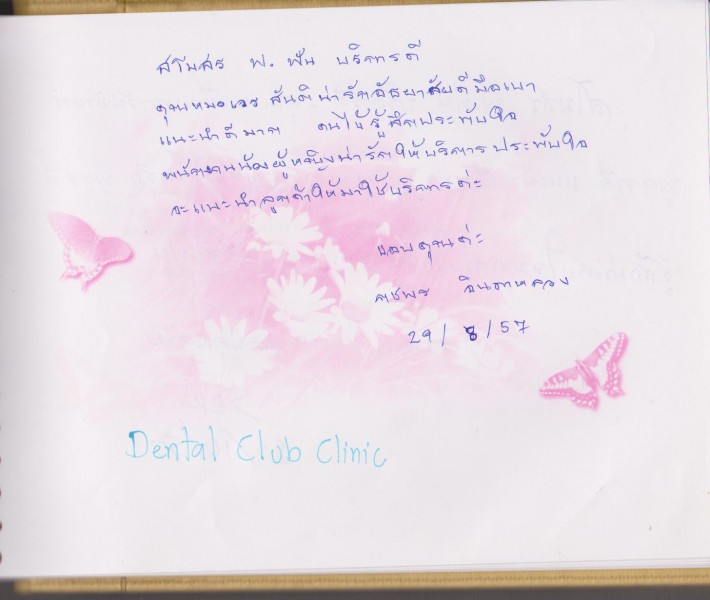 สโมสร ฟ. ฟัน บริการดี
คุณหมอเอว สันติ น่ารักอัธยาศัยดีมือเบา
แนะนำดีมาก คนไข้รู้สึกประทับใจ
พนักงานน้องผู้หญิงน่ารักให้บริการประทับใจ
จะแนะนำลูกค้าให้มาใช้บริการค่ะ
ขอบคุณค่ะ
คชพร จินดาหลวง
29/8/57
Dental Club Clinic